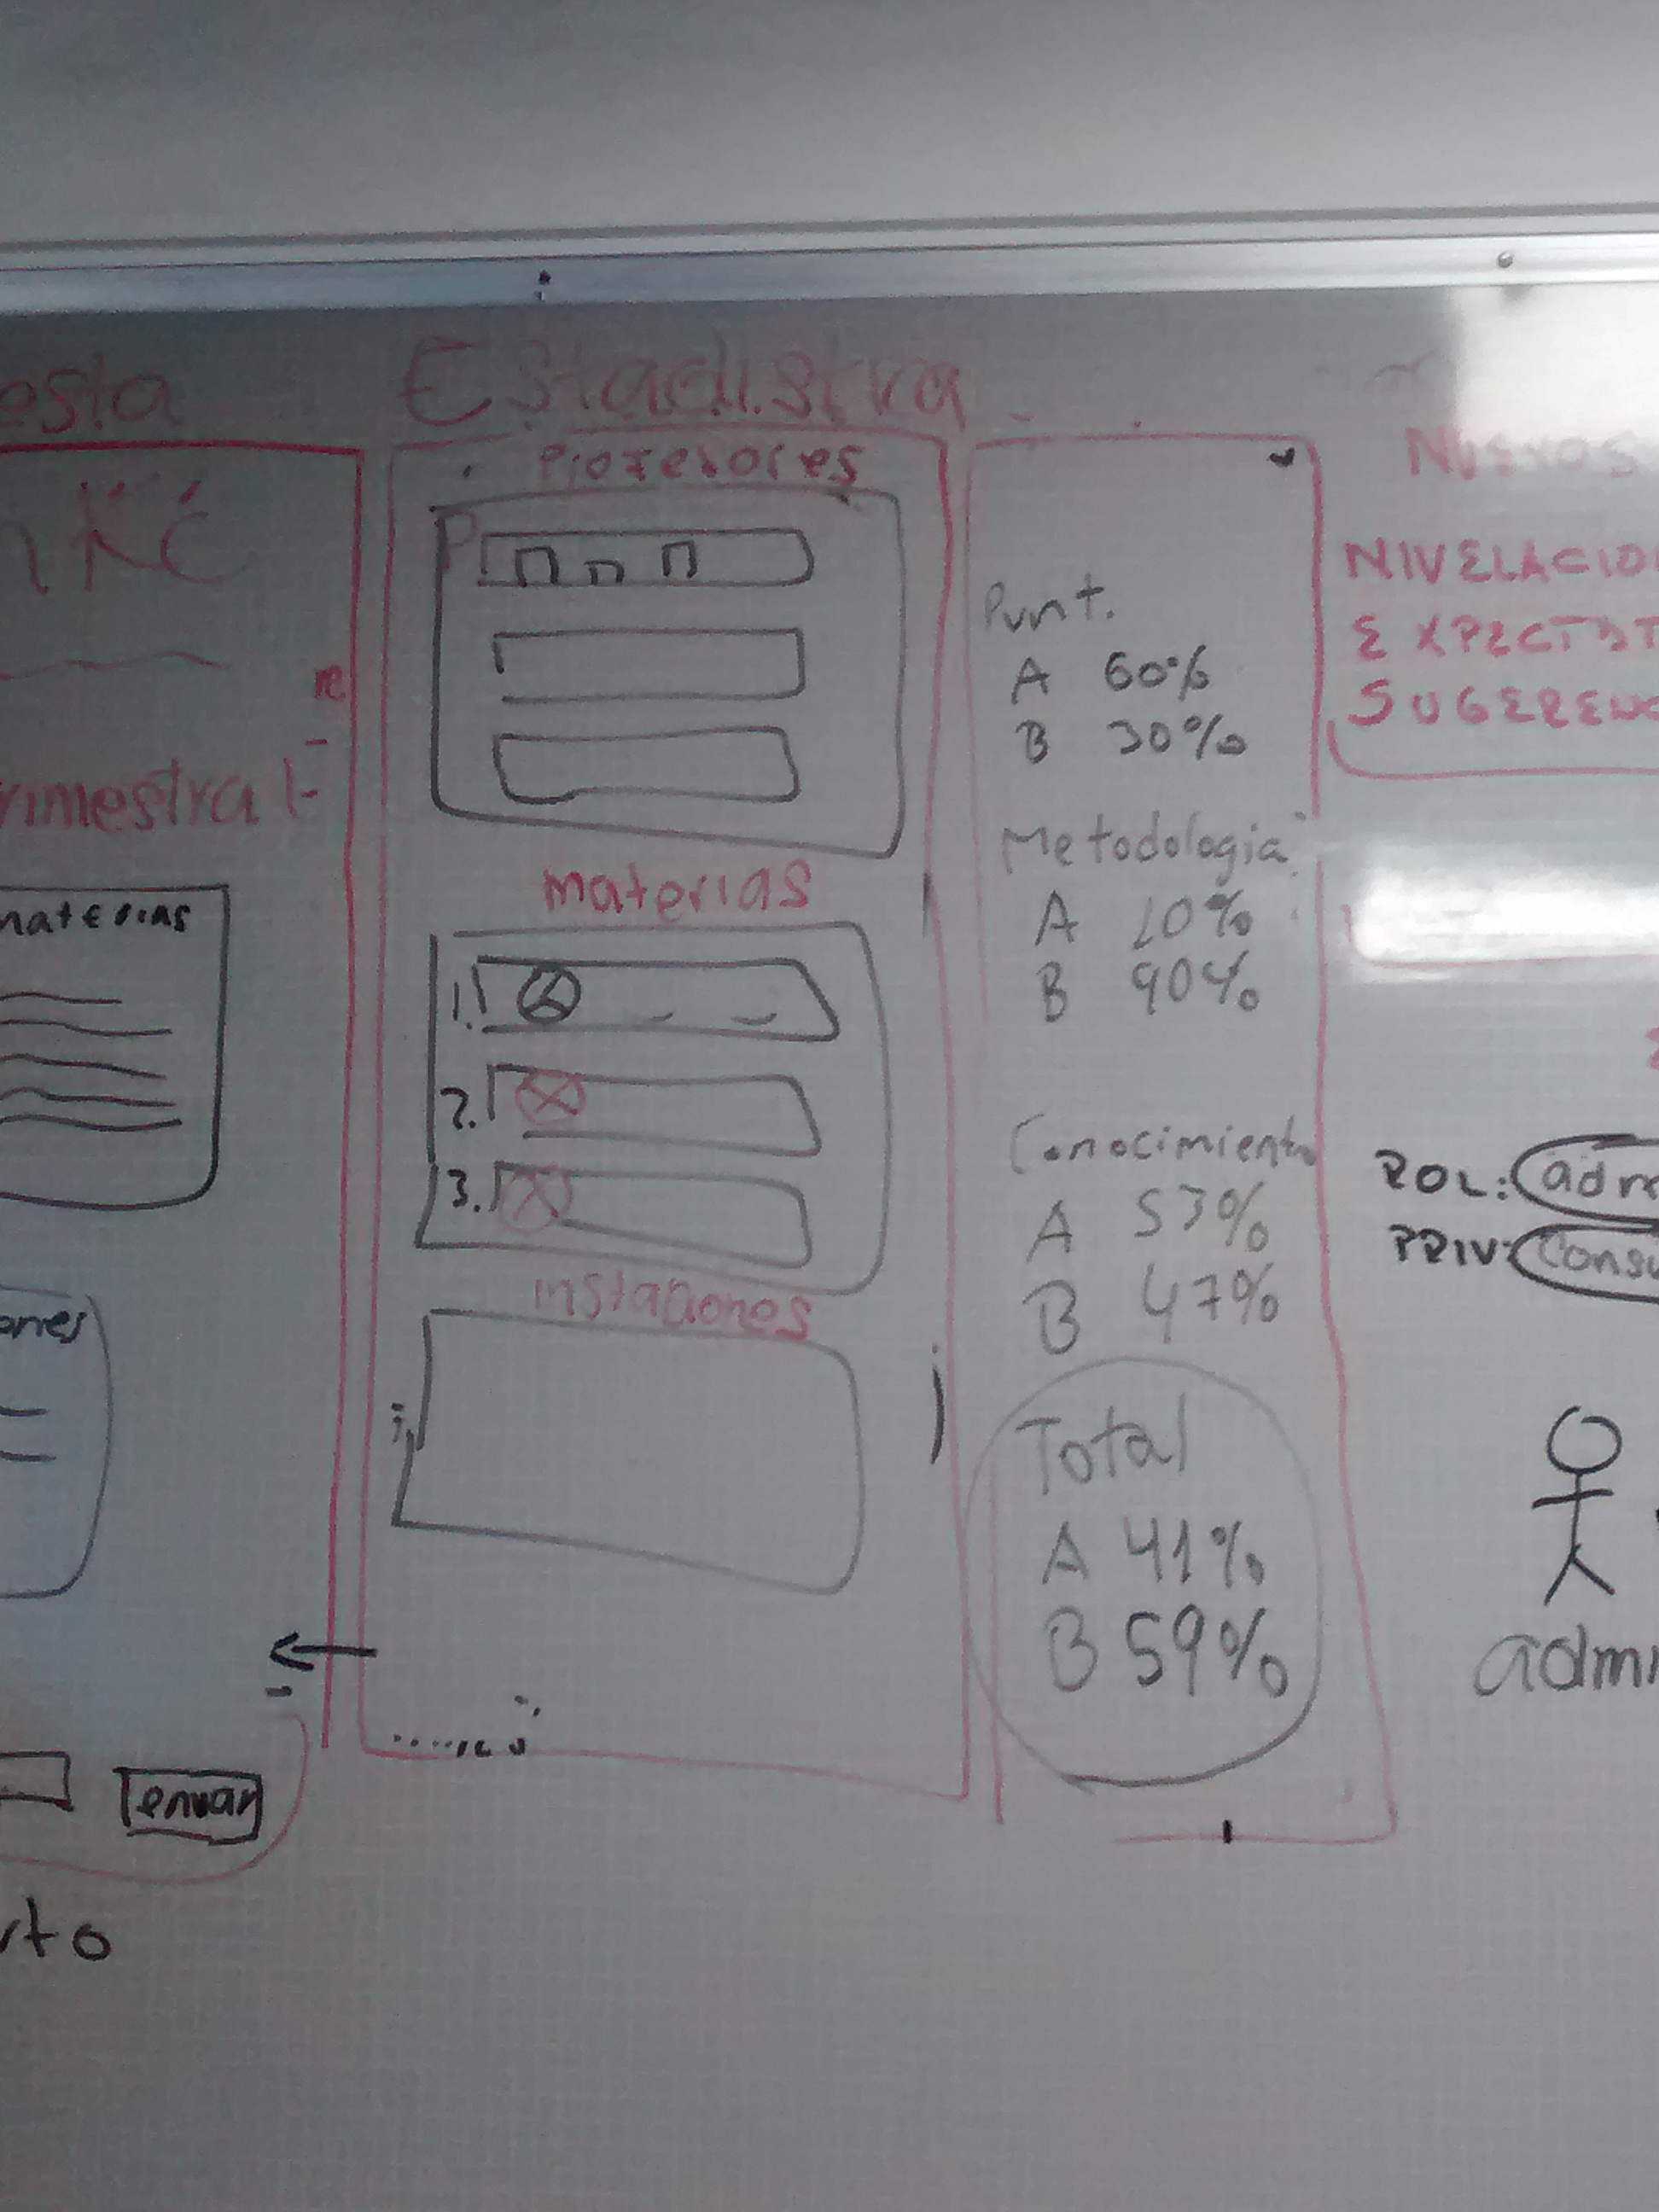 esta
rimestral
materias
ones
enviar
Estadistica
Profesores
materias
1.
2.
3.
instaciones
Punt.
A 60%
B 30%
Metodologia
A 10%
B 90%
Conocimiento
A 53%
B 47%
Total
A 41%
B 59%
Nuevos
NIVELACION
EXPECTAT
SUGERENC
ROL: adm
PRIV: Consu
admi